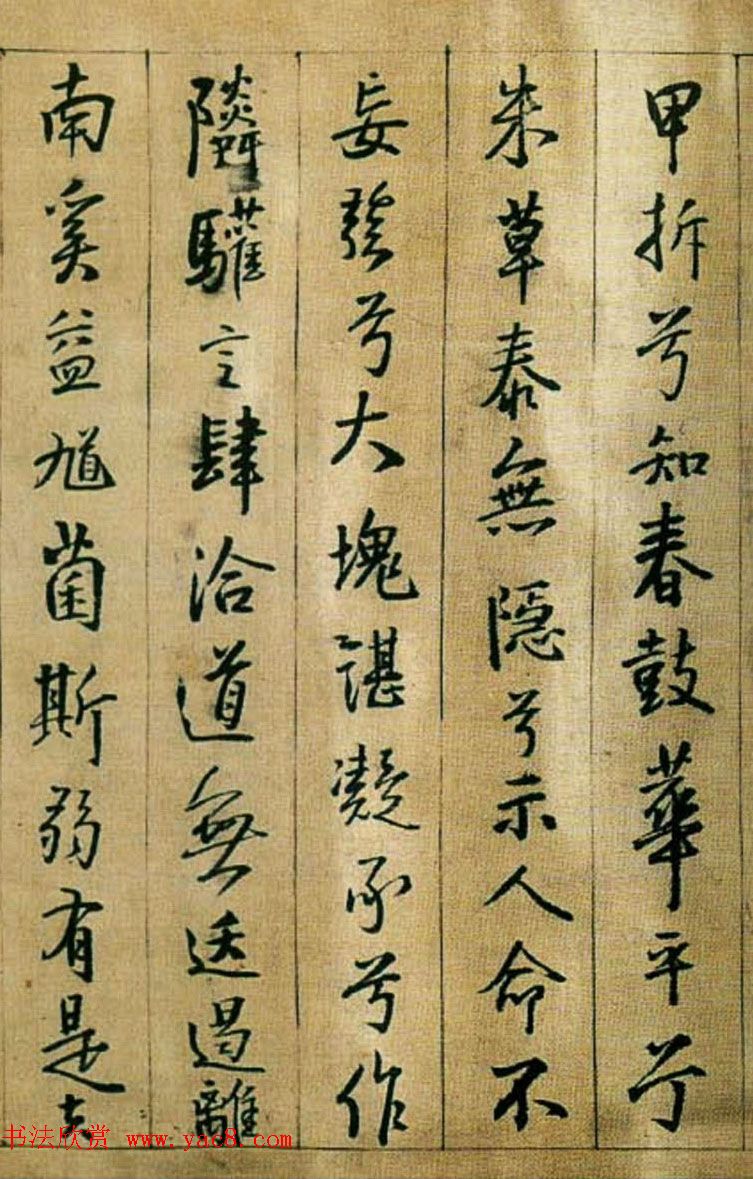 甲拆兮知春鼓華平兮
朱草泰無隱兮示人命不
妄發兮大塊諶凝承兮作
隣驩言肆洽道無送過離
南奚益尷菌斯弱有是夫
书法欣赏 www.yac8.com